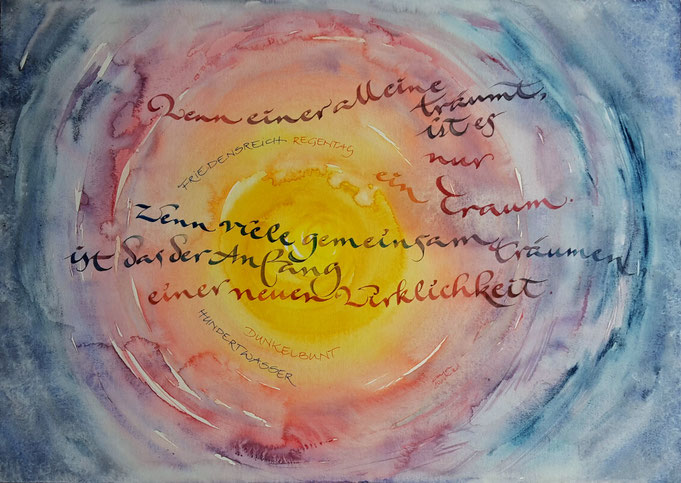 Wenn einer alleine
träumt,
ist es
nur
ein Traum.
FRIEDENSREICH REGENTAG
Wenn viele gemeinsam träumen,
ist das der Anfang
einer neuen Wirklichkeit.
DUNKELBUNT
HUNDERTWASSER